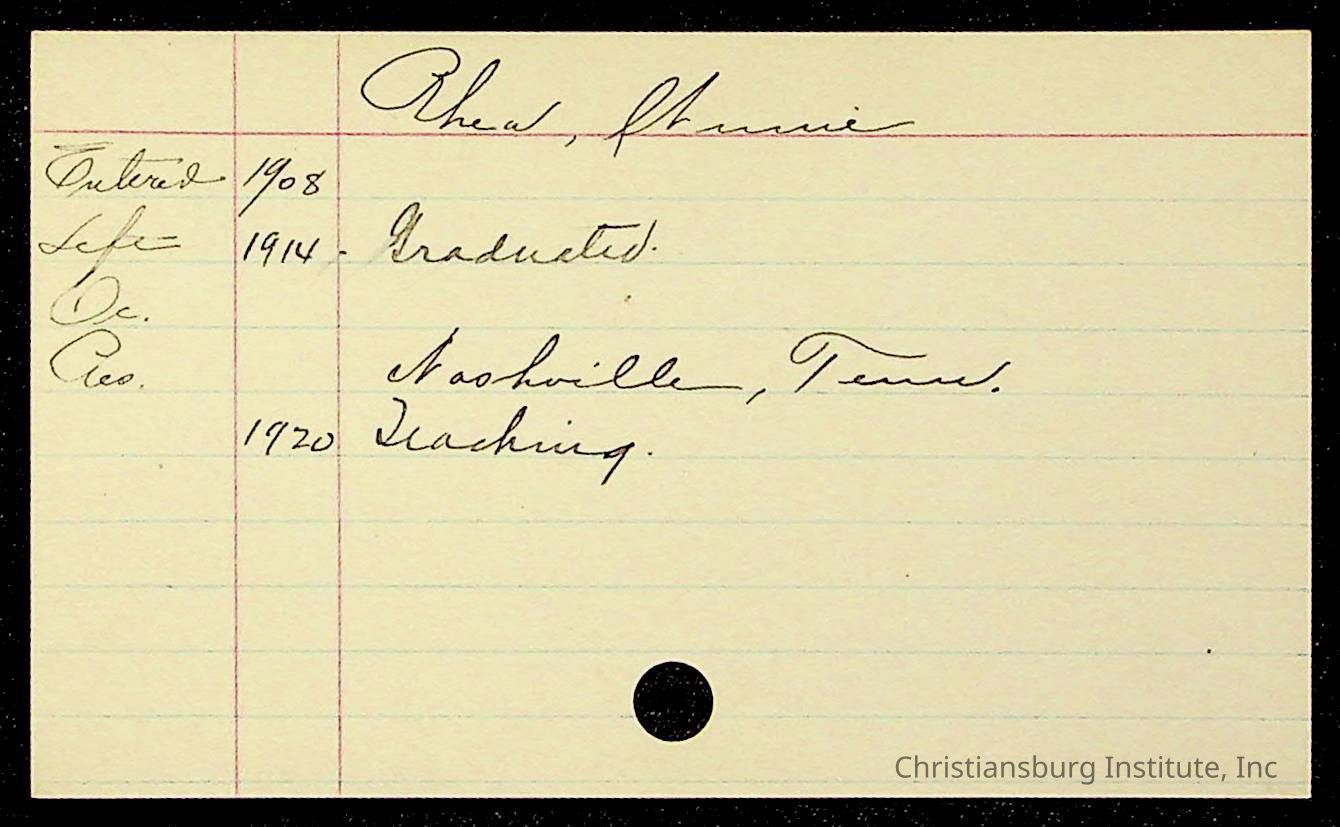 Rhea, Annie
Entered 1908
Left 1914 - Graduated.
Oc.
Res. Nashville, Tenn.
1920 Teaching.
Christiansburg Institute, Inc